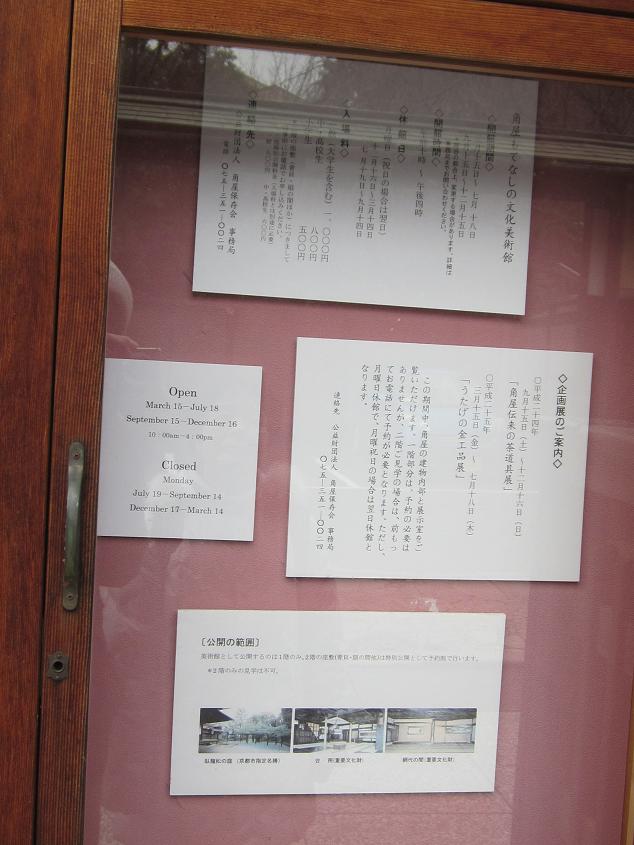 角屋もてなしの文化美術館
◇開館期間◇
◇開館時間◇
午前十時～午後四時
◇休館日◇
月曜日(祝日の場合は翌日)
七月十九日～九月十四日
◇入場料◇
一般(大学生を含む)一、〇〇〇円
中・高校生 八〇〇円
小学生 五〇〇円
◇連絡先◇
公益財団法人 角屋保存会 事務局
電話 〇七五―三五一―〇〇二四
◇企画展のご案内◇
〇平成二十四年
九月十五日(土)～十二月十六日(日)
「角屋伝来の茶道具展」
〇平成二十五年
三月十五日(金)～七月十八日(木)
「うたげの金工品展」
この期間中、角屋の建物内部と展示室をご
覧いただけます。一階部分は、予約の必要は
ありませんが、二階ご見学の場合は、前もっ
てお電話にて予約が必要となります。ただし、
月曜日休館で、月曜祝日の場合は翌日休館と
なります。
連絡先 公益財団法人 角屋保存会 事務局
〇七五―三五一―〇〇二四
Open
March 15―July 18
September 15―December 16
10:00am―4:00pm
Closed
Monday
July 19―September 14
December 17―March 14
[公開の範囲]
美術館として公開するのは1階のみ。2階の座敷(青貝・扇の間他)は特別公開として予約制で行います。
*2階のみの見学は不可。
臥龍松の庭 (京都市指定名勝)
台 所(重要文化財)
網代の間(重要文化財)